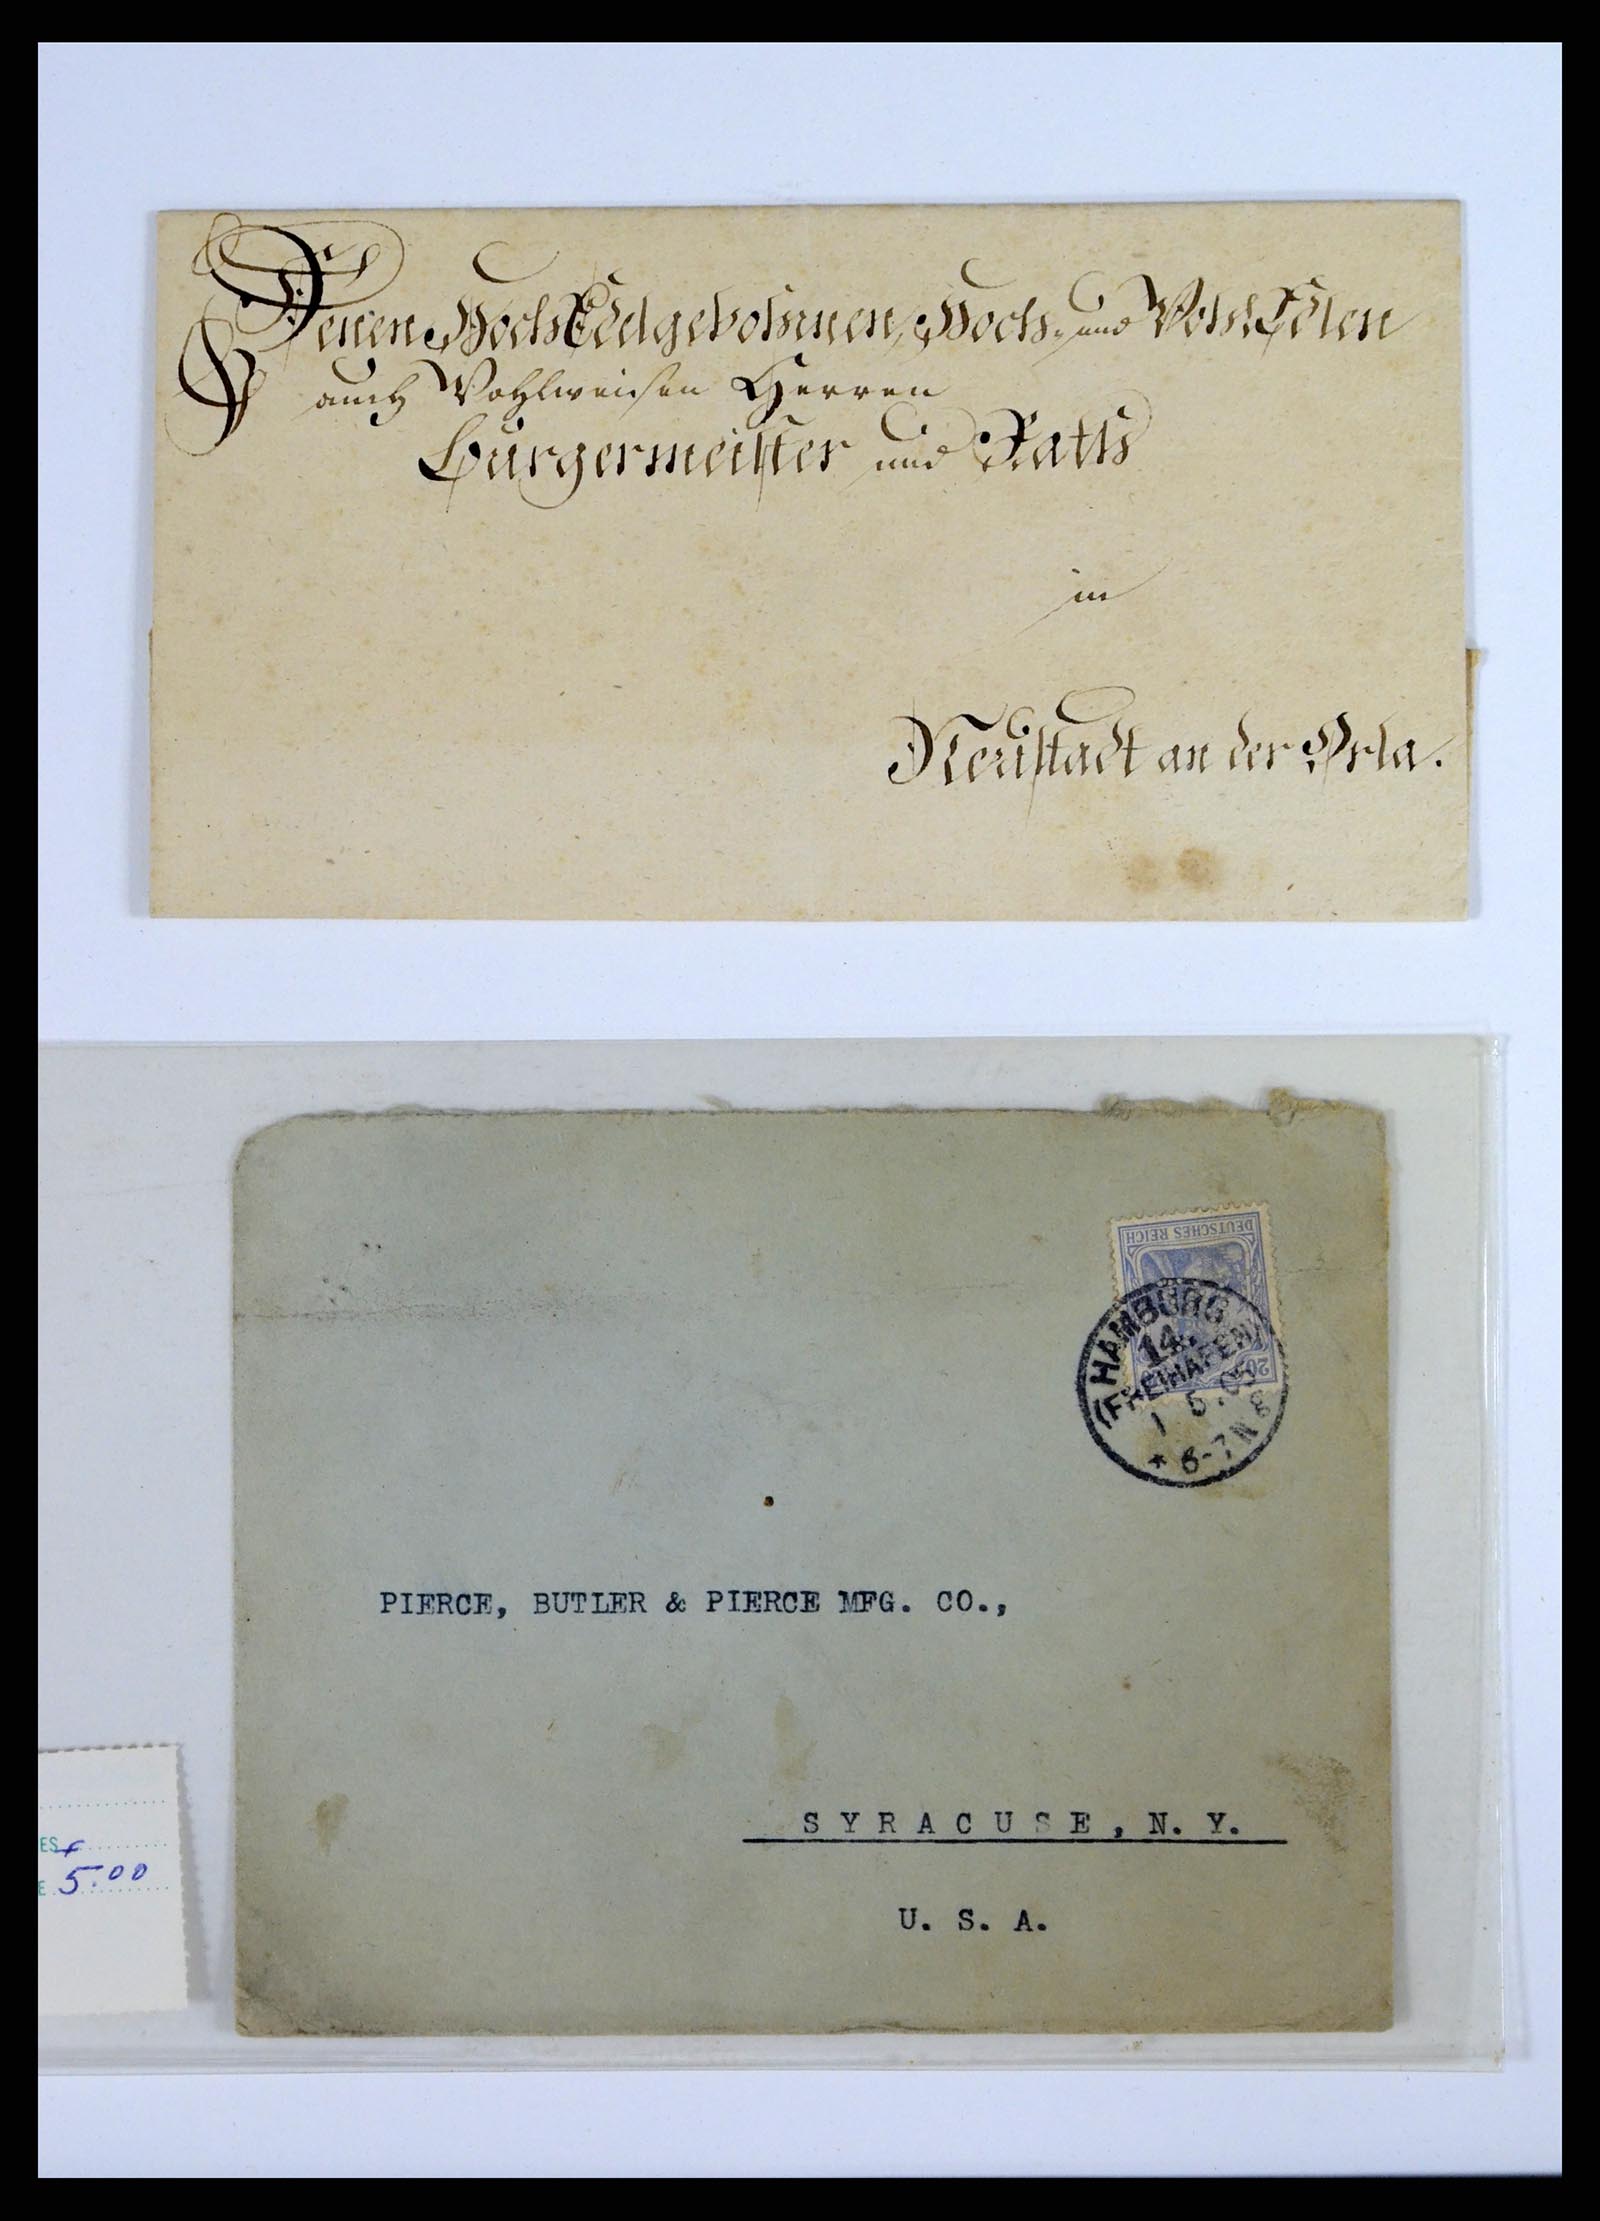 Denen HochEdelgebohrnen, Hoch- und WohlEdlen
auch Wohlweisen Herren
Bürgermeister und Raths
in
Neüstadt an der Orla.
DEUTSCHES REICH
20
HAMBURG
14.
(FREIHAFEN)
1 5.05
* 6-7 N 8
PIERCE, BUTLER & PIERCE MFG. CO.,
SYRACUSE, N. Y.
U. S. A.
ES
E 5.00